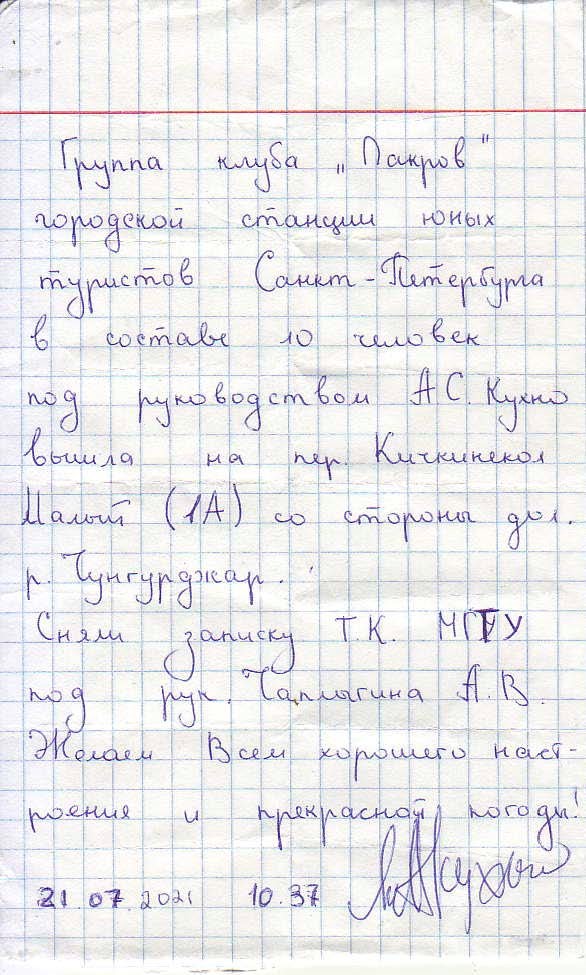 Группа клуба „Пакров"
городской станции юных
туристов Санкт-Петербурга
в составе 10 человек
под руководством А С. Кухно
вышла на пер. Кичкинекол
Малый (1А) со стороны дол.
р. Чунгурджар.
Сняли записку Т.К. МГТУ
под рук. Чаплыгина А.В.
Желаем Всем хорошего наст-
роения и прекрасной погоды!
21.07.2021 10.37